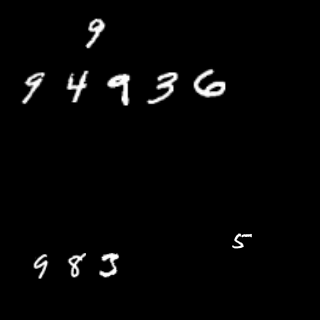 9
94936
5
983